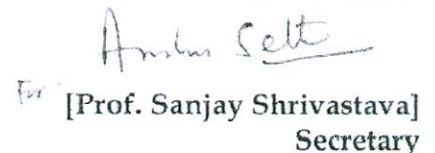 For
[Prof. Sanjay Shrivastava]
Secretary